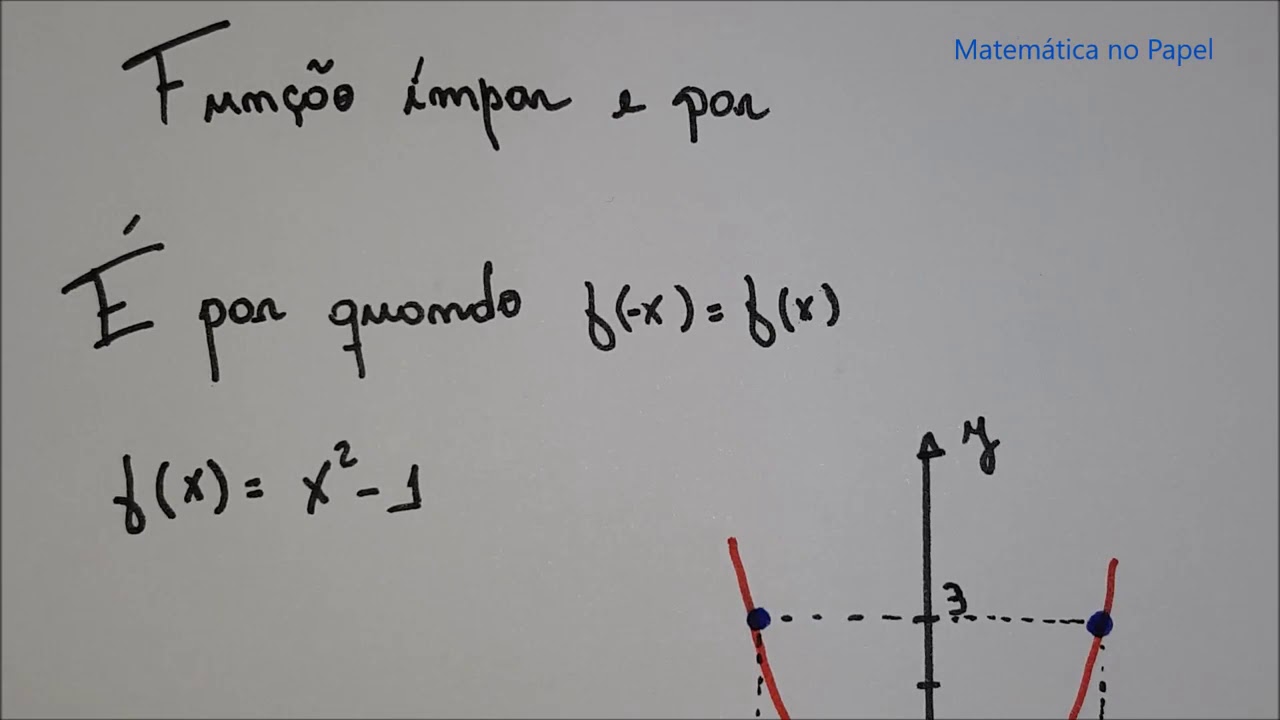 Matemática no Papel
Função ímpar e par
É par quando f(-x) = f(x)
f(x) = x² - 1
y
3